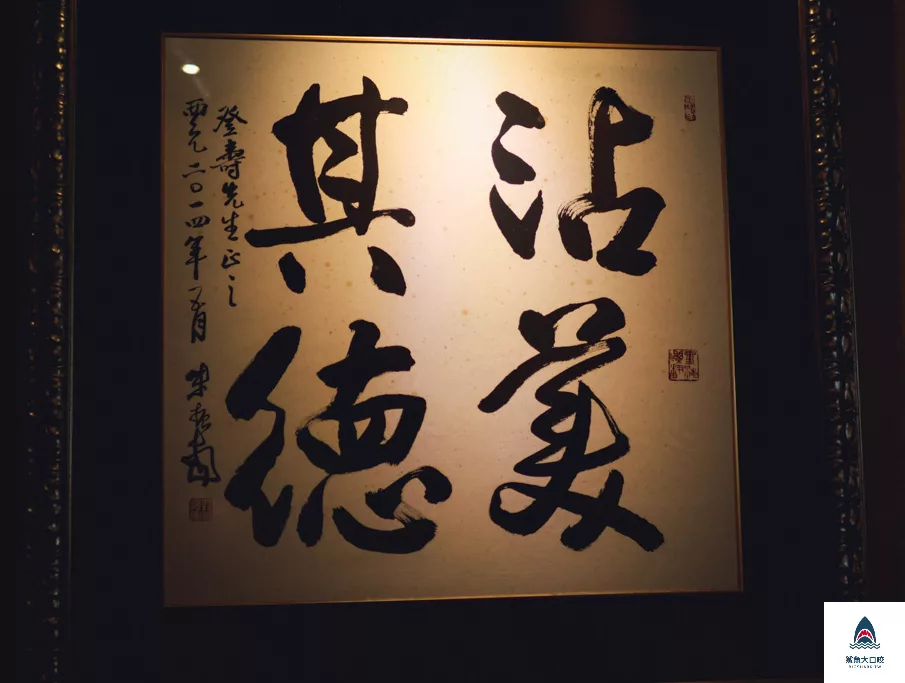 沾美
其德
登壽先生正之
西元二〇一四年 朱振南
鯊魚大口咬